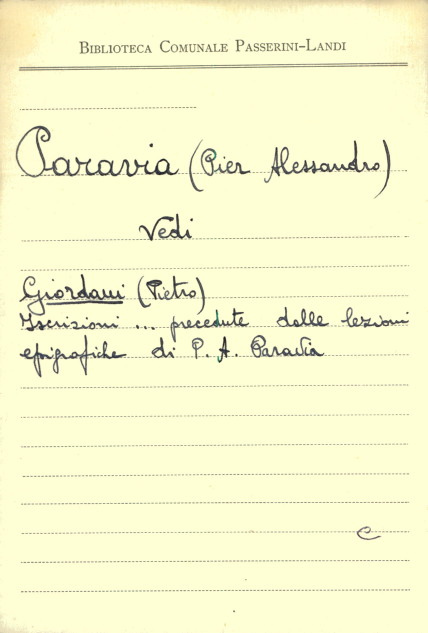 Biblioteca Comunale Passerini-Landi
Paravia (Pier Alessandro)
Vedi
Giordani (Pietro)
Iscrizioni ... precedute dalle lezioni
epigrafiche di P. A. Paravia
C